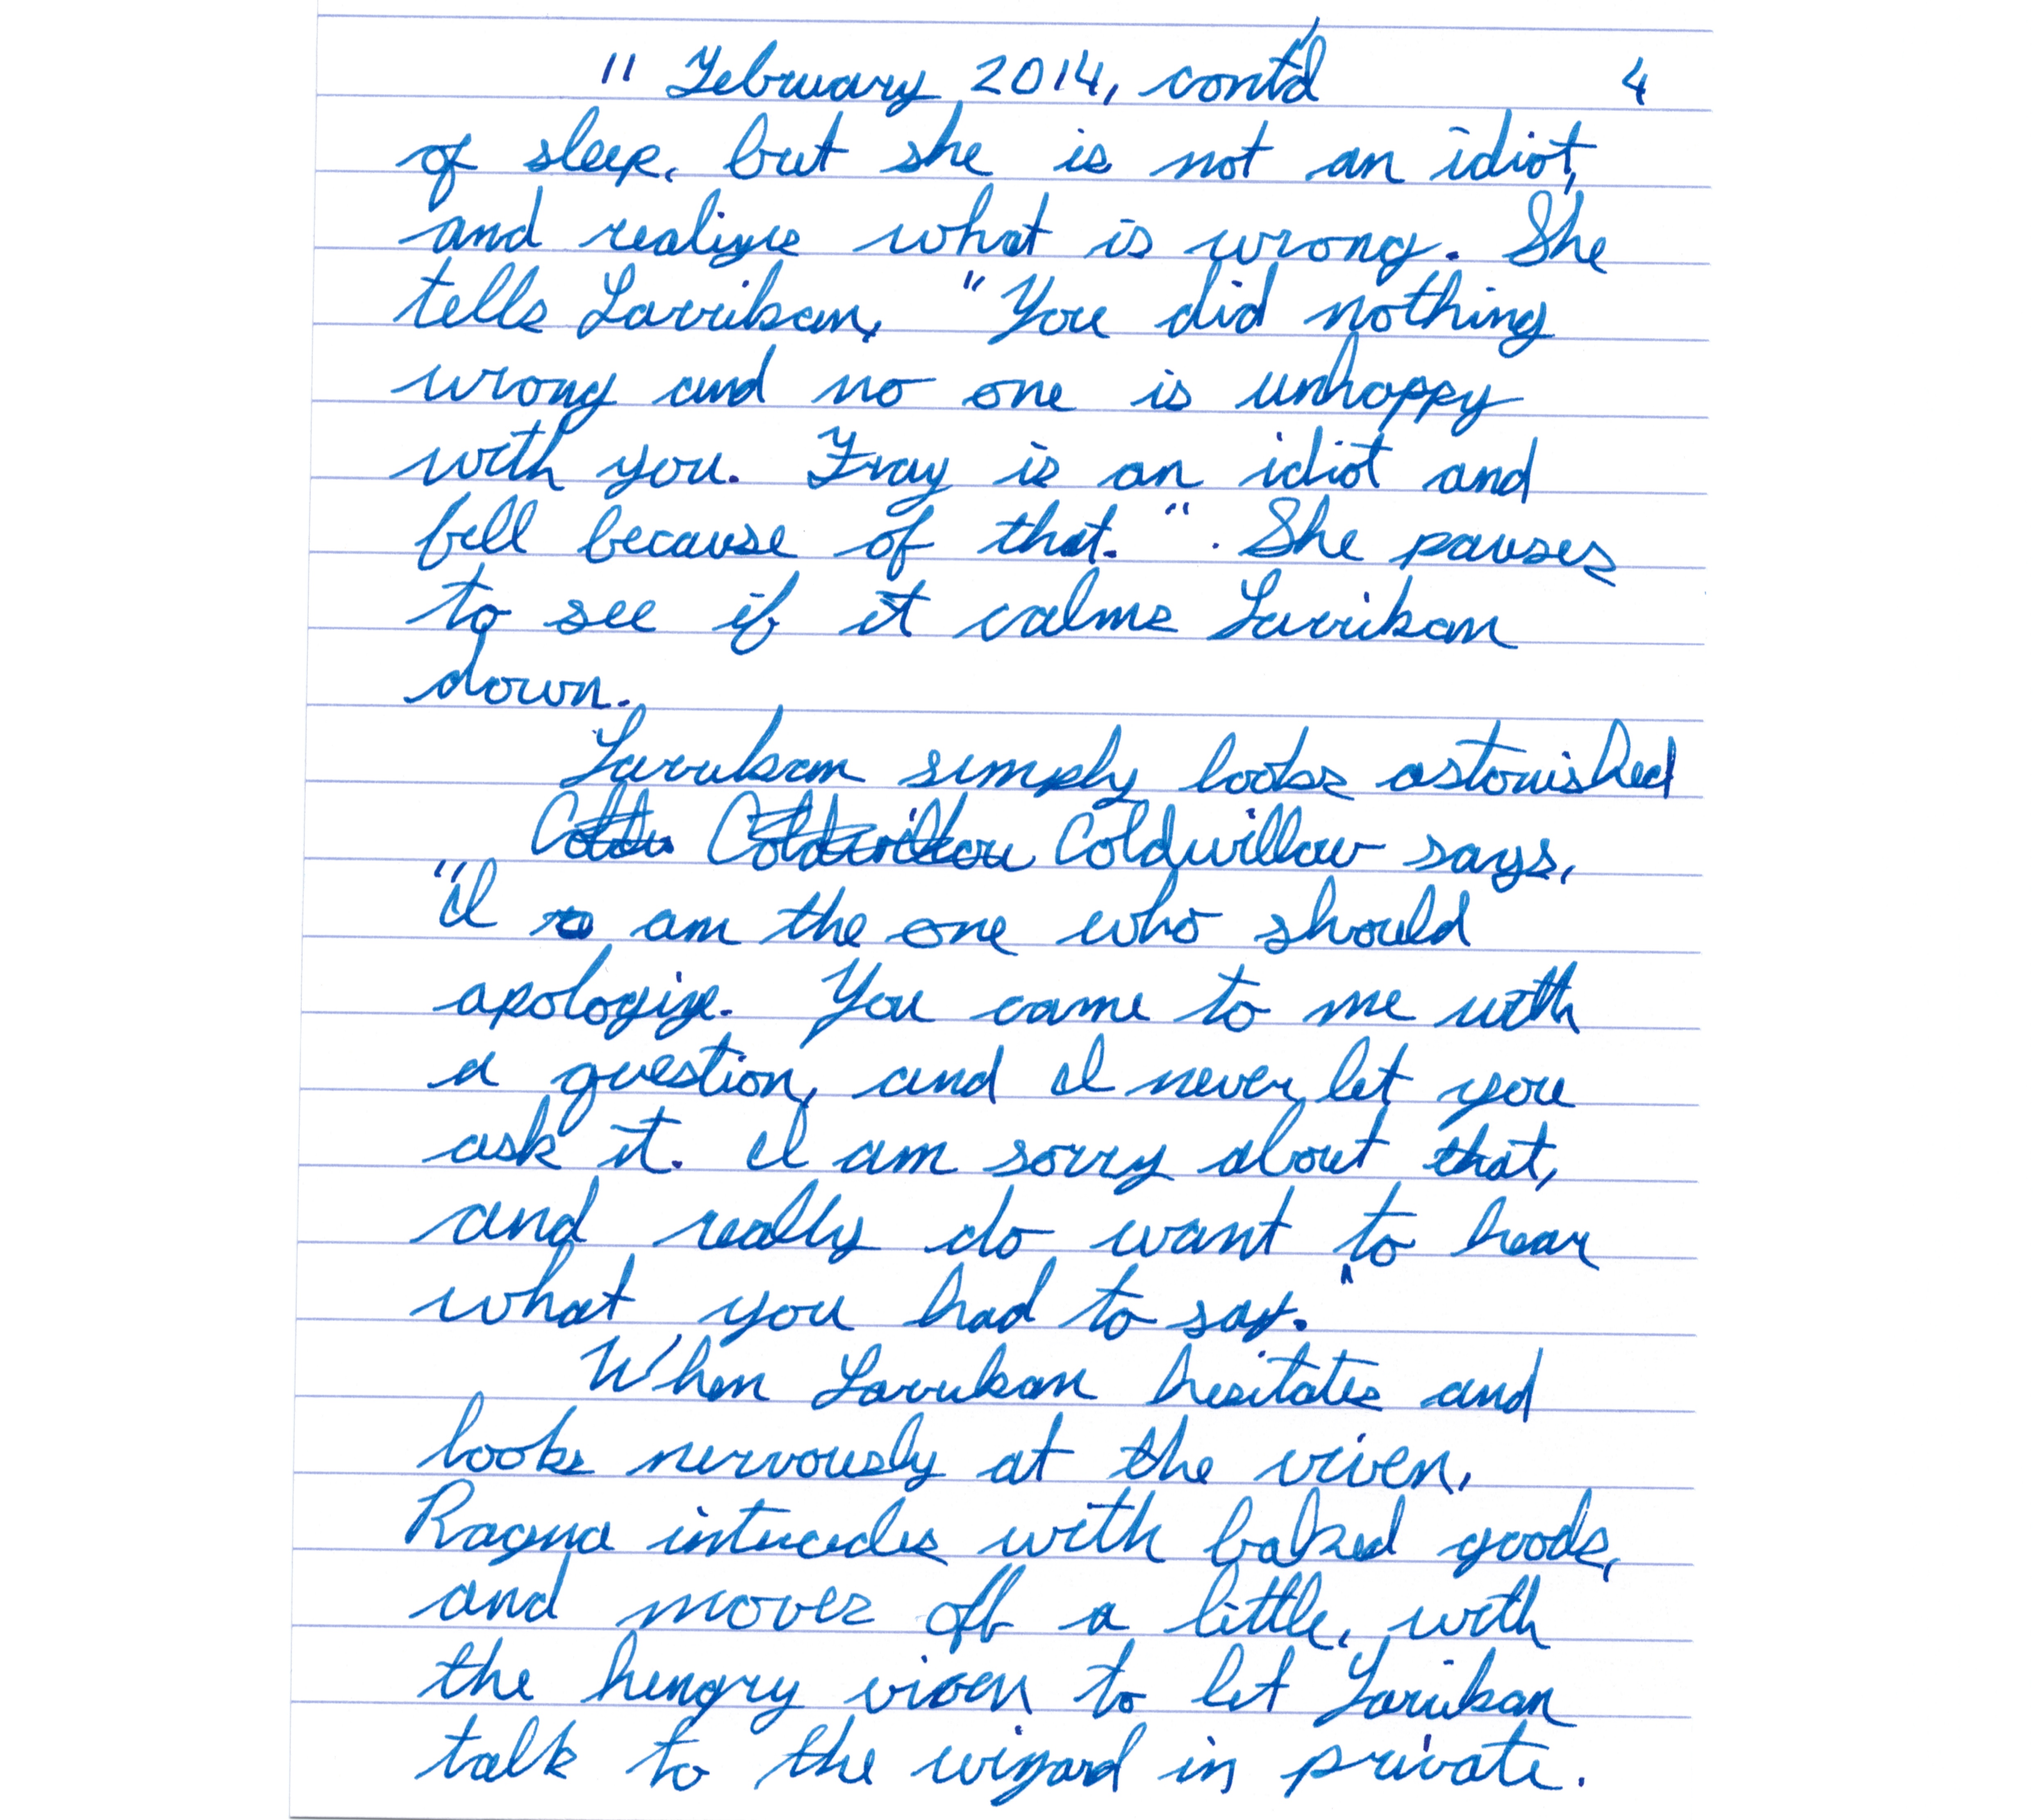 11 February 2014, cont'd 4
of sleep, but she is not an idiot,
and realizes what is wrong. She
tells Larrikan, "You did nothing
wrong and no one is unhappy
with you. Fray is an idiot and
fell because of that." . She pauses
to see if it calms Larrikan
down.
Larrikan simply looks astonished
Coldwillow says,
"I am the one who should
apologize. You came to me with
a question, and I never let you
ask it. I am sorry about that,
and really do want to hear
what you had to say."
When Larrikan hesitates and
looks nervously at the vixen,
Ragna intercedes with baked goods,
and moves off a little, with
the hungry vixen to let Larrikan
talk to the wizard in private.